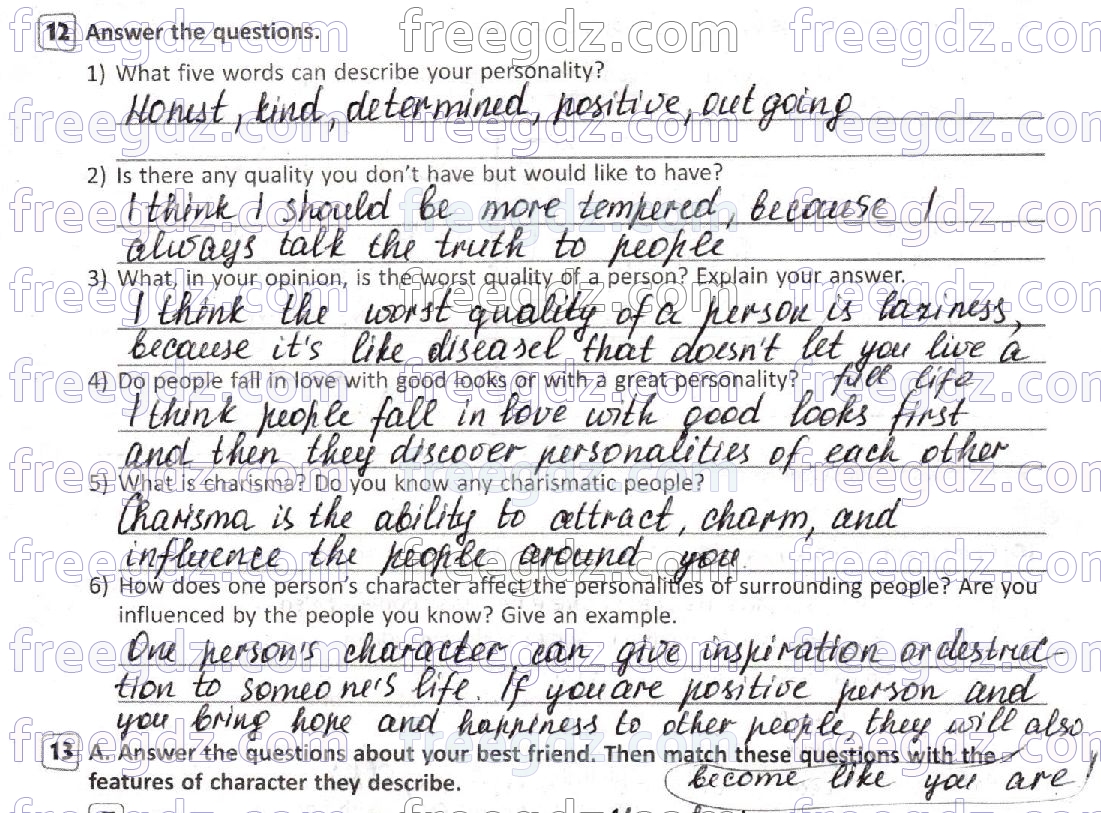 12 Answer the questions.
1) What five words can describe your personality?
Honest, kind, determined, positive, outgoing
2) Is there any quality you don't have but would like to have?
I think I should be more tempered, because I
always talk the truth to people
3) What, in your opinion, is the worst quality of a person? Explain your answer.
I think the worst quality of a person is laziness,
because it's like diseasel that doesn't let you live a
full life
4) Do people fall in love with good looks or with a great personality?
I think people fall in love with good looks first
and then they discover personalities of each other
5) What is charisma? Do you know any charismatic people?
Charisma is the ability to attract, charm, and
influence the people around you.
6) How does one person's character affect the personalities of surrounding people? Are you
influenced by the people you know? Give an example.
One person's character can give inspiration or destruc-
tion to someone's life. If you are positive person and
you bring hope and happiness to other people, they will also
become like you are!
13 A. Answer the questions about your best friend. Then match these questions with the
features of character they describe.
freegdz.com